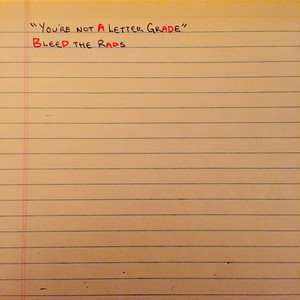 "You're not A Letter Grade"
Bleed the Rads